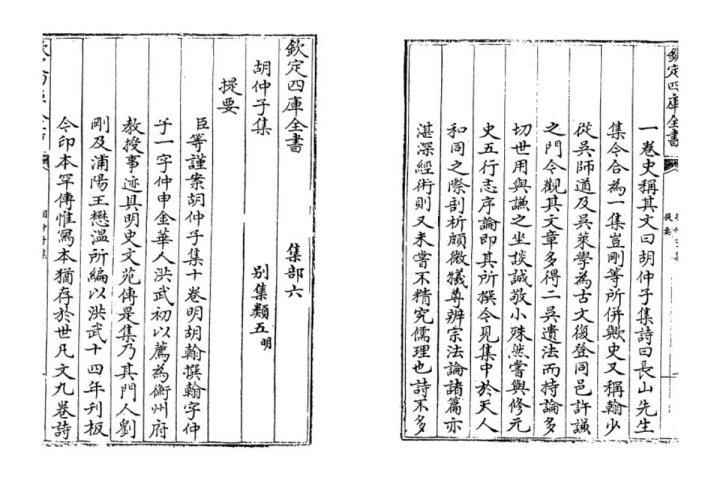 欽定四庫全書 集部六
胡仲子集 別集類五 明
提要
臣等謹案胡仲子集十卷明胡翰撰翰字仲
子一字仲申金華人洪武初以薦為衢州府
教授事迹具明史文苑傳是集乃其門人劉
剛及浦陽王懋溫所編以洪武十四年刋板
今印本罕傳惟寫本猶存於世凡文九卷詩
欽定四庫全書
提要
一卷史稱其文曰胡仲子集詩曰長山先生
集今合為一集豈剛等所併歟史又稱翰少
從吳師道及吳萊學為古文復登同邑許謙
之門今觀其文章多得二吳遺法而持論多
切世用與謙之坐談誠敬小殊然嘗與修元
史五行志序論即其所撰今見集中於天人
和同之際剖析頗微犧尊辨宗法論諸篇亦
湛深經術則又未嘗不精究儒理也詩不多